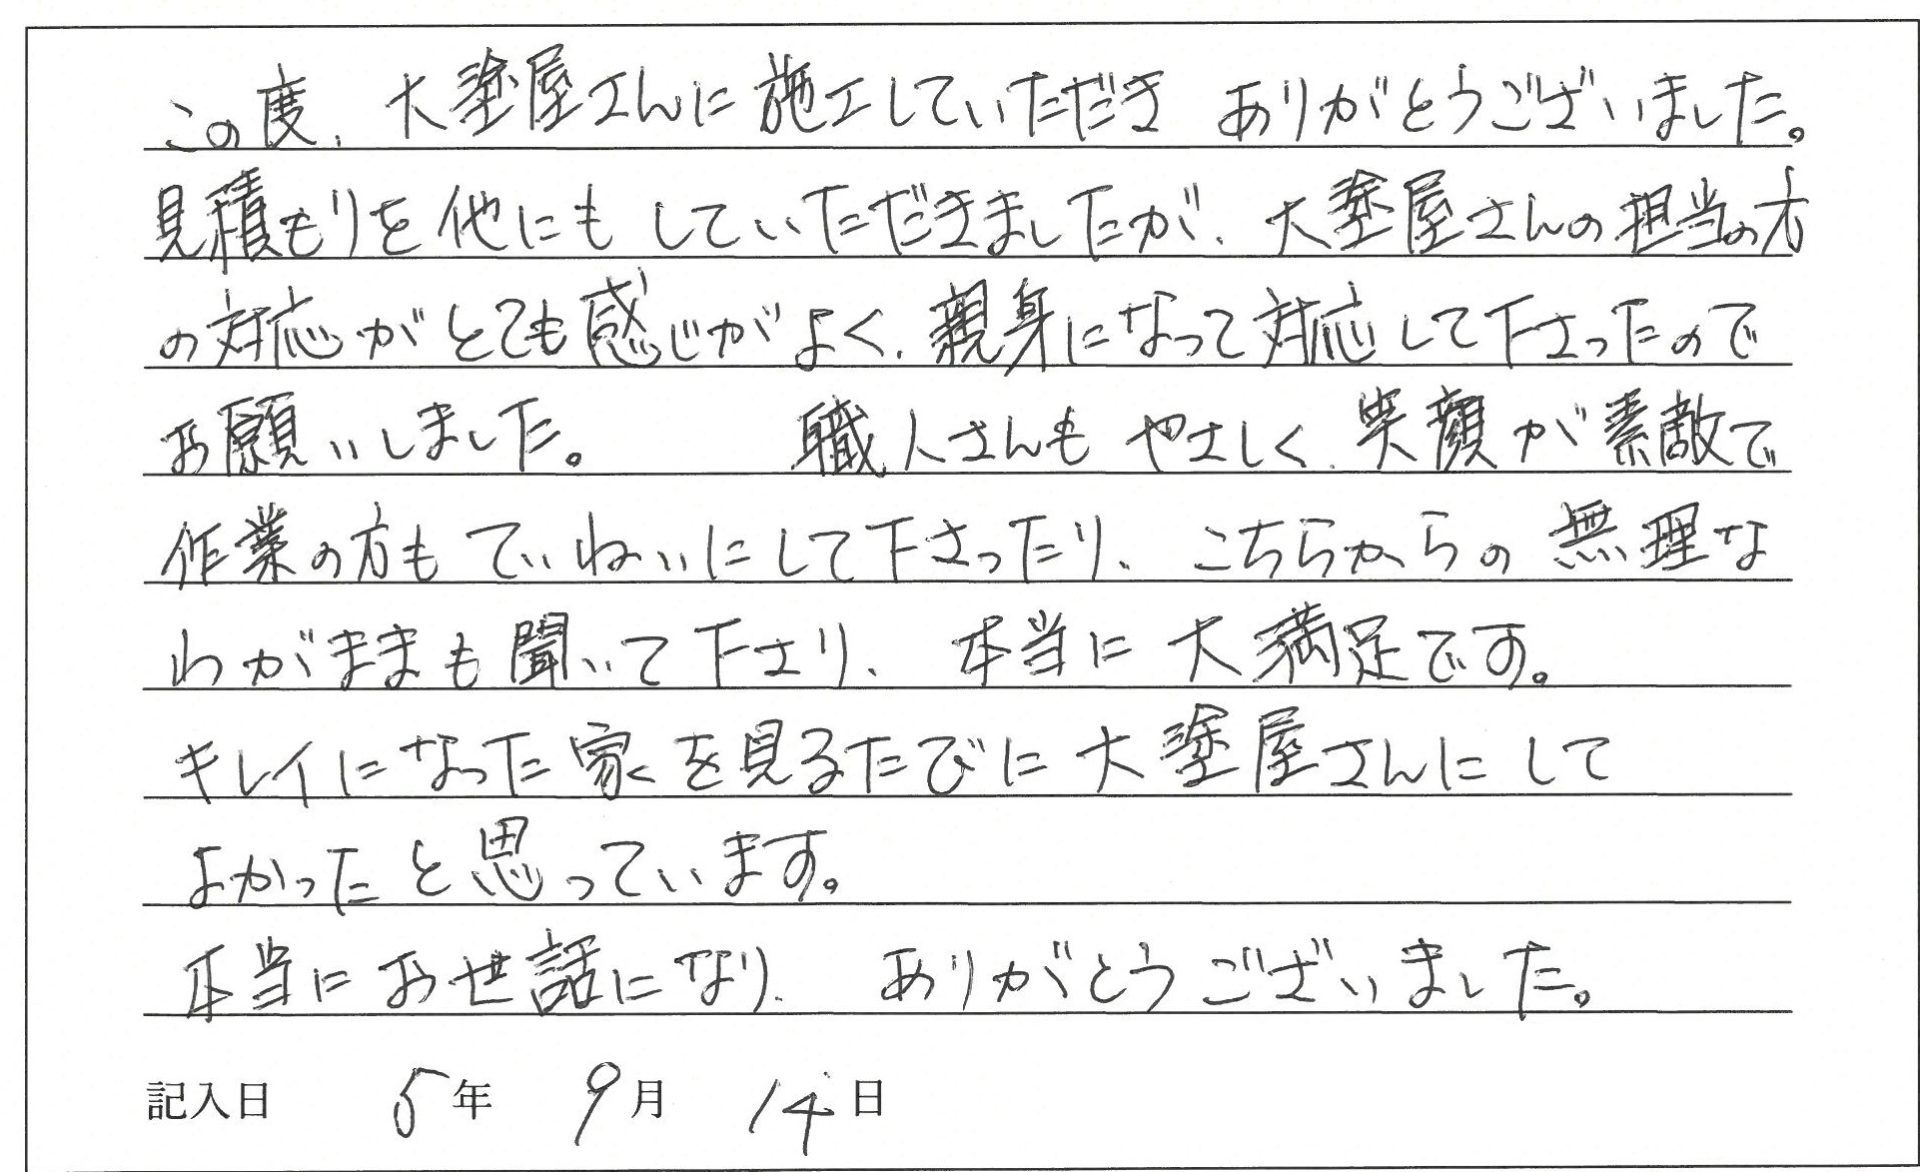 この度、大塗屋さんに施工していただき ありがとうございました。
見積もりを他にもしていただきましたが、大塗屋さんの担当の方
の対応がとても感じがよく、親身になって対応して下さったので
お願いしました。 職人さんもやさしく、笑顔が素敵で
作業の方もていねいにして下さったり、こちらからの無理な
わがままも聞いて下さり、本当に大満足です。
キレイになった家を見るたびに大塗屋さんにして
よかったと思っています。
本当にお世話になり、ありがとうございました。
記入日 5年 9月 14日